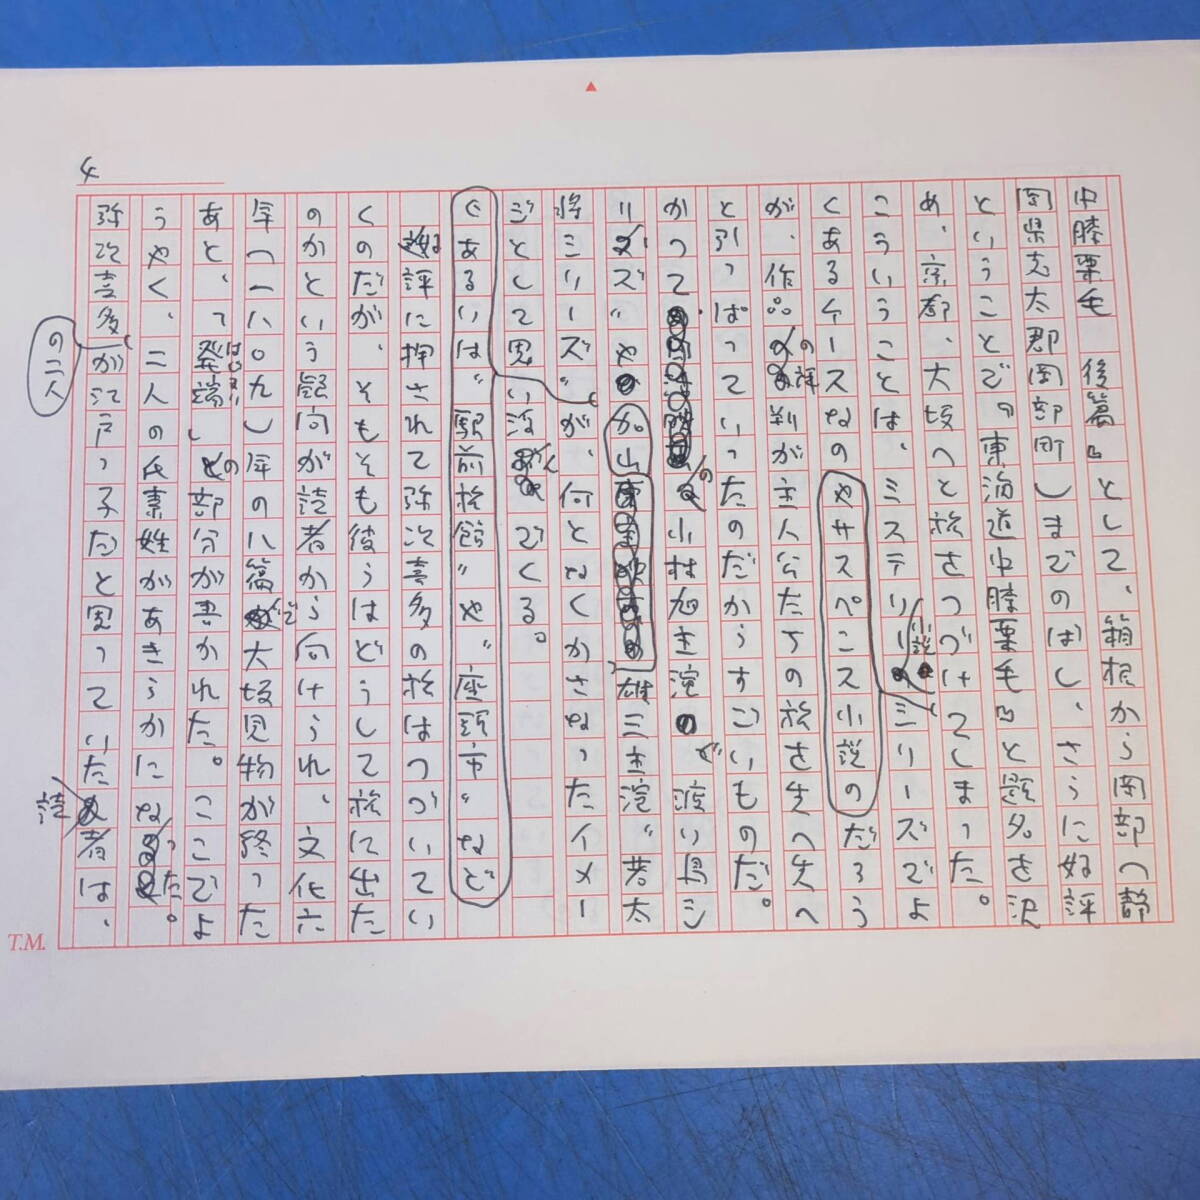 4
中膝栗毛　後篇』として、箱根から岡部へ静
岡県志太郡岡部町)までのばし、さらに好評
ということで『東海道中膝栗毛』と題名を決
め、京都、大坂へと旅をつづけてしまった。
こういうことは、ミステリー小説シリーズでよ
くあるケースなのだろう
やサスペンス小説の
が、作品の評判が主人公たちの旅を先へ先へ
と引っぱっていったのだからすごいものだ。
かつての小林旭主演で渡り鳥シ
リーズ〟や加山雄三主演〝若大
将シリーズ〟が、何となくかさなったイメー
ジとして思い浮んでくる。
(あるいは〝駅前旅館〟や〝座頭市〟など
好評に押されて弥次喜多の旅はつづいてい
くのだが、そもそも彼らはどうして旅に出た
のかという疑問が読者から向けられ、文化六
年(一八〇九)年の八篇で大坂見物が終った
あと、『発端』の部分が書かれた。ここでよ
はじまり
うやく、二人の氏素姓があきらかになった。
弥次喜多が江戸っ子だと思っていた読者は、
の二人
T.M.